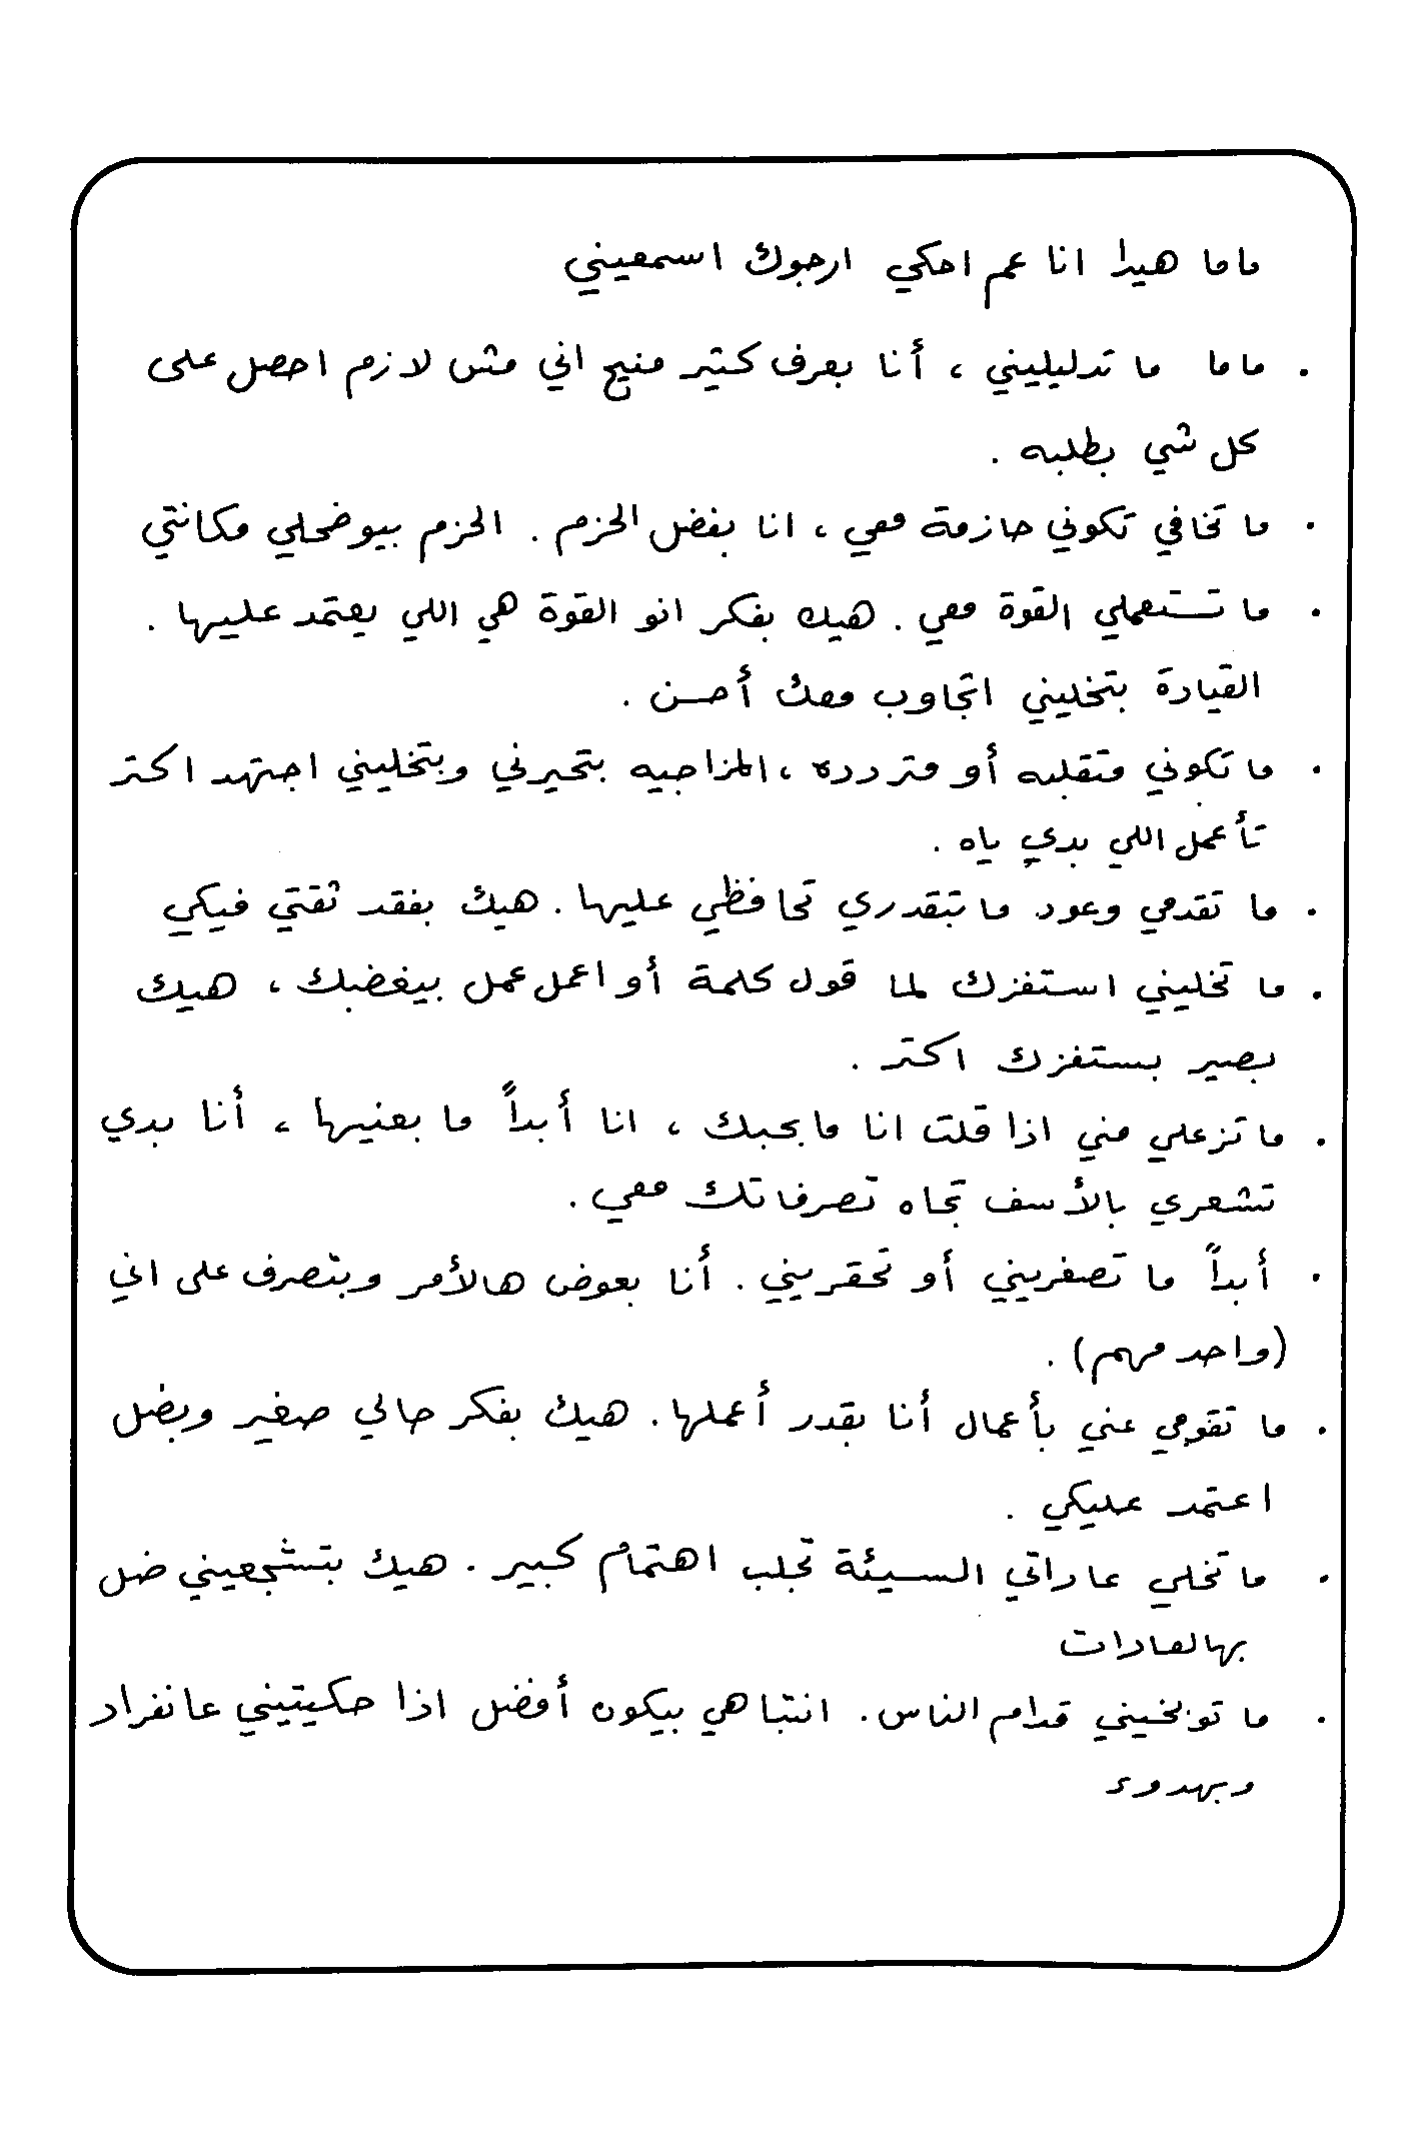 ماما هيدا انا عم احكي ارجوك اسمعيني
. ماما ما تدليليني ، أنا بعرف كتير منيح اني مش لازم احصل على
كل شي بطلبه .
. ما تخافي تكوني حازمة معي ، انا بفضل الحزم . الحزم بيوضحلي مكانتي
. ما تستعملي القوة معي . هيك بفكر انو القوة هي اللي يعتمد عليها .
القيادة بتخليني اتجاوب معك أحسن .
. ما تكوني متقلبه أو متردده ، المزاجيه بتحيرني وبتخليني اجتهد اكتر
تأعمل اللي بدي ياه .
. ما تقدمي وعود ما بتقدري تحافظي عليها . هيك بفقد ثقتي فيكي
. ما تخليني استفزك لما قول كلمة أو اعمل عمل بيغضبك ، هيك
بصير بستفزك اكتر .
. ما تزعلي مني اذا قلت انا ما بحبك ، انا أبداً ما بعنيها ، أنا بدي
تشعري بالأسف تجاه تصرفاتك معي .
. أبداً ما تصغريني أو تحقريني . أنا بعوض هالأمر وبتصرف على اني
(واحد مهم) .
. ما تقومي عني بأعمال أنا بقدر أعملها . هيك بفكر حالي صغير وبضل
اعتمد عليكي .
. ما تخلي عاداتي السيئة تجلب اهتمام كبير . هيك بتشجعيني ضل
بهالعادات
. ما توبخيني قدام الناس . انتباهي بيكون أفضل اذا حكيتيني عانفراد
وبهدوء